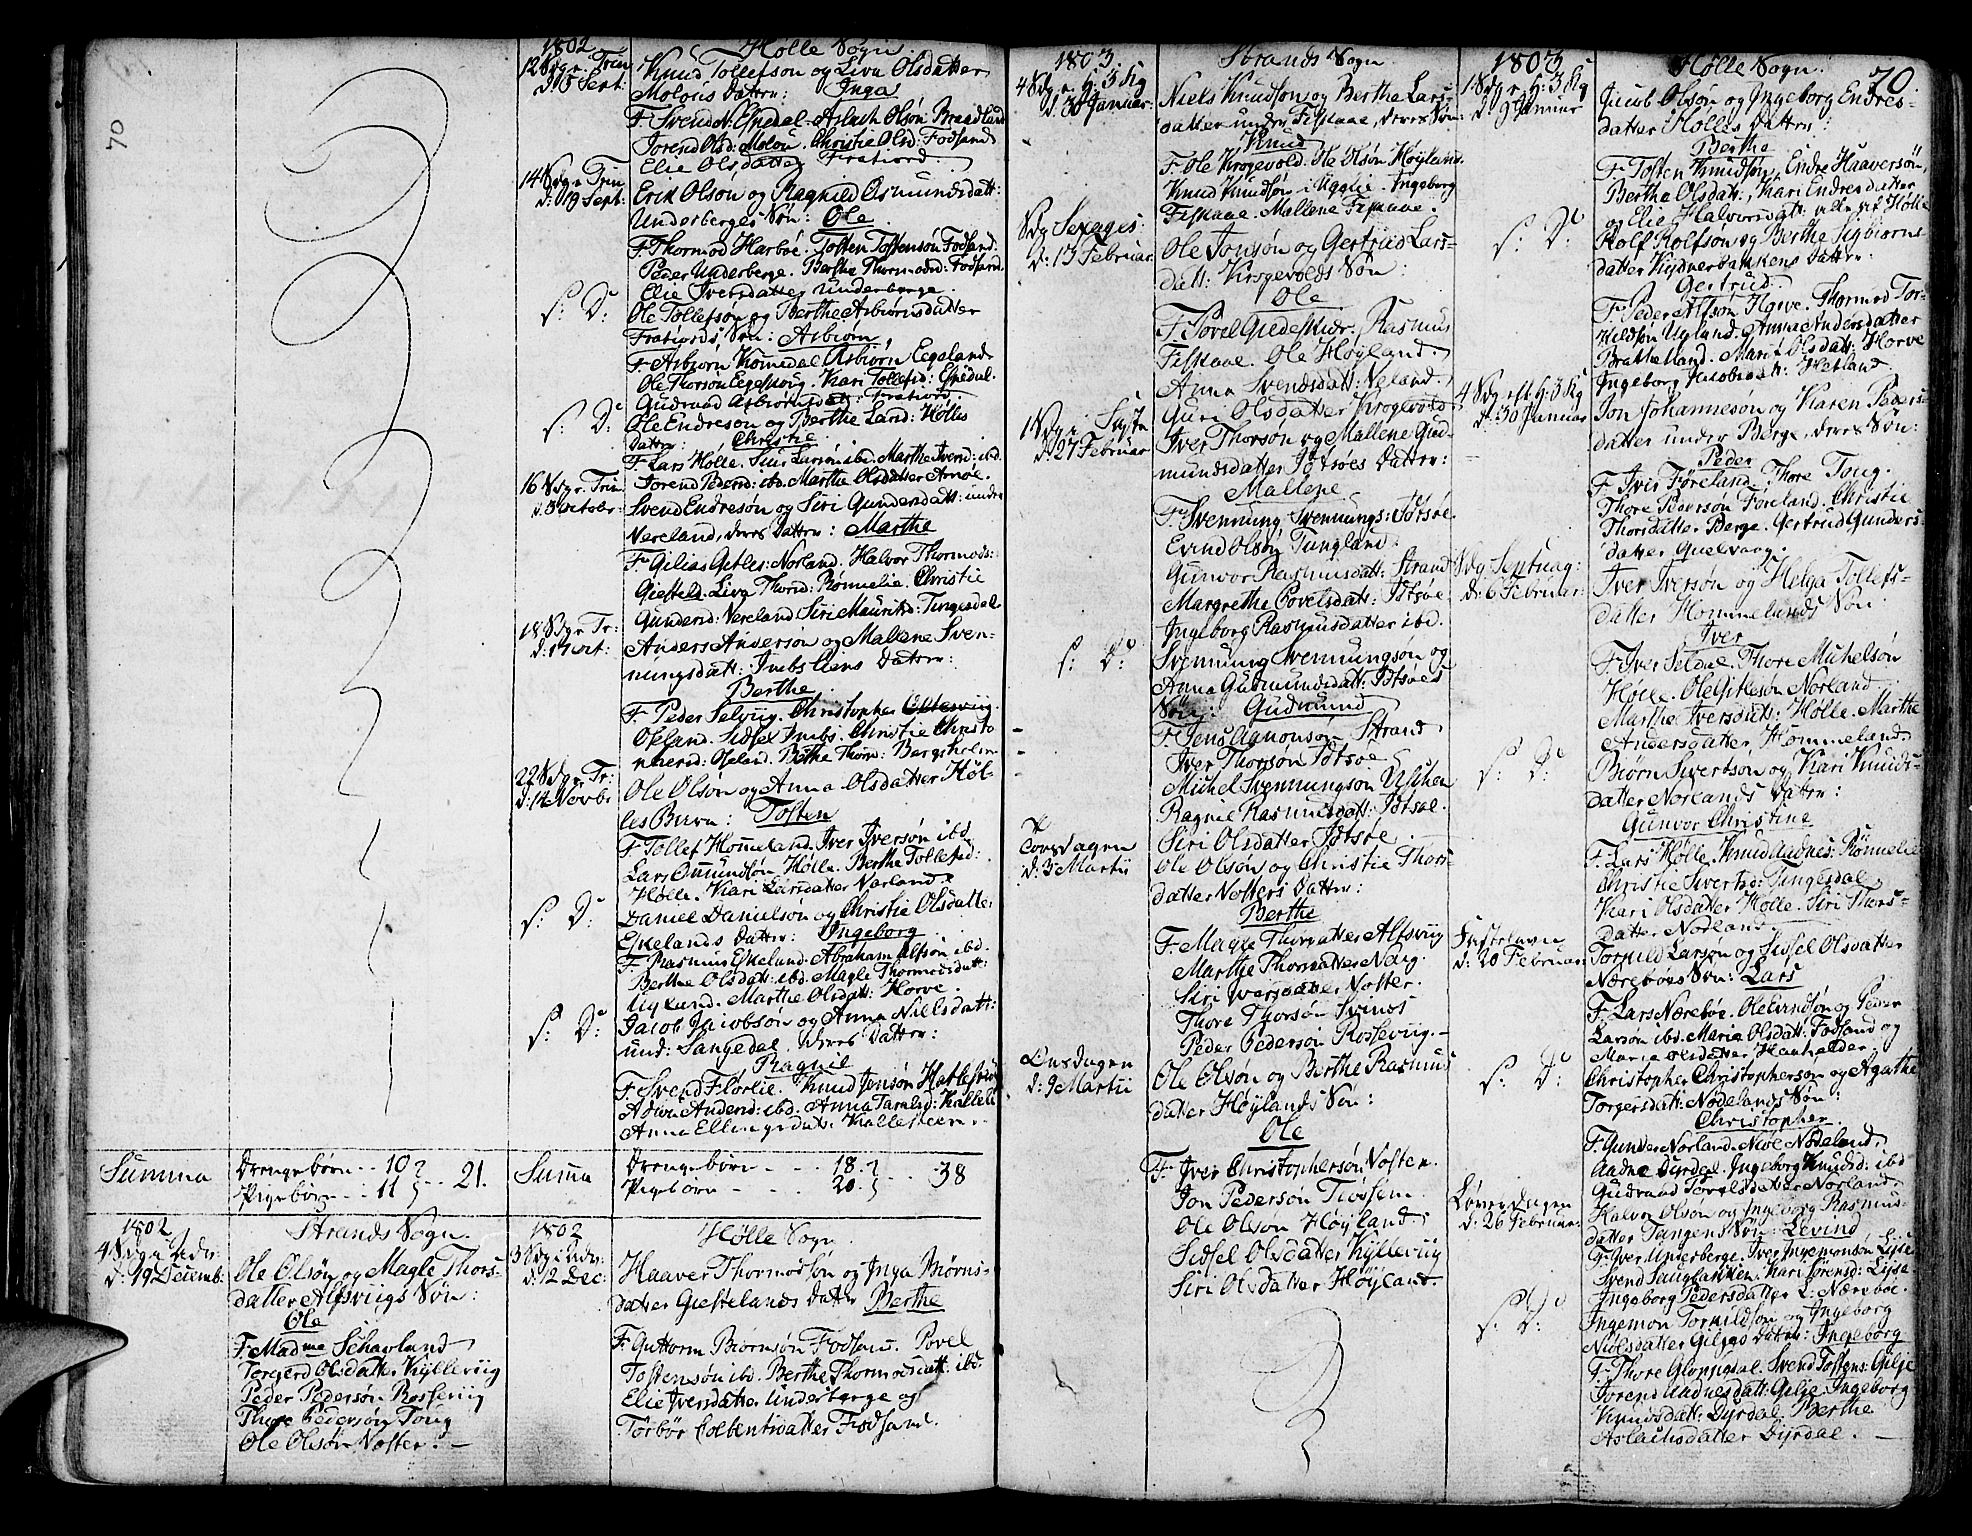 70
1802
Hølle Sogn.
12 Sdg e. Trin
d: 5 Sept:
Knud Tollefsøn og Liva Olsdatter
Moløus Datter: Inga
F. Svend N. Espedal. Aslach Olsøn Brandland
Jorend Olsd: Moløu. Christie Olsd: Fodsand
Elie Olsdatter Fratiord.
14 Sdg e. Trin
d: 19 Sept:
Erik Olsøn og Ragnild Osmundsdatt:
Underberges Søn: Ole
F. Thormod Harboe. Tosten Tostensøn Fodsand:
Peder Underberge. Berthe Thormodsd: Fodsand.
Elie Iversdatter underberge.
S: D:
Ole Tollefsøn og Berthe Asbiørnsdatter
Fratiords Søn: Asbiørn
F. Asbiørn Kommedal Asbiørn Eegeland
Ole Thorsøn Eegeskoug. Kari Tollefsd: Espedal.
Gudraad Asbiørnsdatt: Fratiord.
S: D:
Ole Endresøn og Berthe Land: Hølles
Datter: Christie
F. Lars Hølle. Siur Larsøn ibd. Marthe Iversd: ibd.
Jorend Pedersd: ibd. Marthe Olsdatter Arnøe.
16 Sdg e. Trin
d: 3 October
Svend Endresøn og Siri Gundersdatt: under
Nereland, deres Datter: Marthe
F. Gilias Gitles: Norland. Halvor Thormods:
Giesteld. Liva Thorsd: Rønnelie. Christie
Gundersd: Nereland Siri Mauritsd: Tungesdal
18 Sdg e. Tr:
d: 17 Oct:
Anders Andersøn og Mallene Sven-
nungsdatt: Imbs Eiens Datter:
Berthe
F. Peder Selviig. Christopher Oltesviig.
Oseland. Sidsel Imbs. Christie Christo
phersd: Oseland. Berthe Thorsd: Bergsholm
22 Sdg e. Tr:
d: 14 Novbr
Ole Olsøn og Anna Olsdatter Høl-
les Barn: Tosten
F. Tollef Hommeland. Iver Iversøn ibd
Lars Omundsøn Hølle. Berthe Tollefsd:
Hølle. Kari Larsdatter Norland
S: D:
Daniel Danielsøn og Christie Olsdatter
Eskelands Datter: Ingeborg
F. Rasmus Eskeland. Abraham Alfsøn ibd.
Berthe Olsdatt: ibd. Magle Thormodsdatt:
Uglund. Marthe Olsdatt: Horve.
S: D:
Jacob Jacobsøn og Anna Nielsdatt:
und: Sangedal, deres Datter:
Ragnil
F. Svend Florlie. Knud Jensøn Hatleskog
Anna Andersd: ibd. Anna Tarald: Kallele
Anna Ellingsdatt: Kallesteen.
Summa
Drengebørn - - 10
Pigebørn - - 11 - - 21.
Summa
Drengebørn - - 18.
Pigebørn - - - 20. - - 38
1802
Strands Sogn.
4 Sdg i Adv:
d: 19 Decemb:
Ole Olsøn og Magle Thors-
datter Alfsviigs Søn:
Ole
F. Madme Schavland
Torgerd Olsdatter Kylleviig
Peder Pedersøn Rosseviig
Thore Pedersøn Toug
Ole Olsøn Noster. -
1802
Hølle Sogn.
3 Sdg i Adv:
d: 12 Dec:
Haaver Thormodsøn og Inga Biørns-
datter Giestelands Datter Berthe
F. Guttorm Biørnsøn Fodsand. Povel
Tostensøn ibd. Berthe Thormodsdatt: ibd.
Elie Iversdatter Underberge og
Torbør Colbentsdatter Fodsand.
1803.
Strands Sogn.
4 Sdg e. H: 3 Kg
d: 30 Januar:
Niels Knudsøn og Berthe Lars-
datter under Fiskaae, deres Søn:
Knud
F. Ole Krogevold. Ole Olsøn Høyland.
Knud Knudsøn i Ugglie. Ingeborg
Fiskaae. Mallene Fiskaae.
Sdg Sexages:
d: 13 Februar
Ole Jonsøn og Gertrud Lars-
datt: Krogevolds Søn:
Ole
F. Povel Giedeskier. Rasmus
Fiskaae. Ole Høyland.
Anna Svendsdatt: Neland.
Guri Olsdatter Krogevold.
1 Sdg i Faste
d: 27 Februar
Iver Thorsøn og Mallene Gud-
mundsdatter Jøtsøes Datter:
Mallene
F. Svennung Svennungs: Jøtsøe.
Evind Olsøn Tungland.
Gunvor Rasmusdatt: Strand
Margrethe Povelsdatt: Jøtsøe
Ingeborg Rasmusdatter ibd.
S: D:
Svennung Svennungsøn og
Anna Gudmundsdatt: Jøtsøes
Søn: Gudmund
F. Jens Aamonsøn Strand
Iver Thorsøn Jøtsøe
Michel Svennungsøn
Ragnil Rasmusdatt: Jøtsøe.
Siri Olsdatter Jøtsøe.
Torsdagen
d: 3 Martii
Ole Olsøn og Christie Thors-
datter Nosters Datter:
Berthe
F. Magle Thorsdatter Alfsviig
Marthe Thorsdatter Nerg.
Siri Iversdatter Noster.
Thore Thorsøn Svines
Peder Pedersøn Rosseviig. -
Onsdagen
d: 9 Martii
Ole Olsøn og Berthe Rasmus
datter Høylands Søn:
Ole
F. Iver Christophersøn Nosten.
Jon Pedersøn Tiøssem.
Ole Olsøn Høyland
Sidsel Olsdatter Kylleviig
Siri Olsdatter Høyland.
1803
Hølle Sogn.
70.
1 Sdg e. H: 3 Kg
d: 9 Januar
Jacob Olsøn og Ingeborg Endres-
datter Hølles Datter:
Berthe
F. Tosten Knudsøn, Endre Haaversøn,
Bertha Olsdatt:, Kari Endresdatter
og Elie Halvorsdatt: alle paa Hølle
S: D:
Rolf Rolfsøn og Berthe Sigbiørns-
datter Kydnerbakkens Datter:
Gertrud
F. Peder Alfsøn Horve. Thormod Tor-
kildsøn Ugland. Anna Andersdatter
Bratheland. Mari Olsdatt: Horve
Ingeborg Jacobsdatt: Hetland.
4 Sdg eft H: 3 Kg
d: 30 Januar
Jon Johannesøn og Karen Peders-
datter under Berge, deres Søn:
Peder
F. Iver Føreland. Thore Toug.
Thore Pedersøn Foreland. Christie
Thorsdatter Berge. Gertrud Gunders-
datter Quelvaag.
Sdg Septuag:
d: 6 Februar:
Iver Iversøn og Helga Tollefs-
datter Hommelands Søn.
Iver
F. Iver Seldal. Thore Michelsøn
Hølle. Ole Gitlesøn Norland
Marthe Iversdatt: Hølle. Marthe
Andersdatter Hommeland.
S: D:
Biørn Sivertsøn og Kari Knuds-
datter Norlands Datter:
Gunvor Christine
F. Lars Hølle. Knud Aadnes: Rønnelie
Christie Sivertsd: Tungesdal,
Kari Olsdatter Hølle. Siri Thors-
datter Norland.
Fastelavn
d: 20 Februar
Torkild Larsøn og Sidsel Olsdatter
Nærebøes Søn: Lars
F. Lars Nærebøe. Ole Evindsøn og Peder
Larsøn ibd. Maria Olsdatt: Fodsand og
Maria Olsdatter Haahelder.
S: D:
Christopher Christophersøn og Agathe
Torgersdatt: Nødelands Søn:
Christopher
F. Gunder Norland. Nicls Nødeland.
Aadne Dyrdal. Ingeborg Knudsd: ibd
Gudraad Torgelsdatter Norland.
Løverdagen
d: 26 Februar:
Halvor Olsøn og Ingeborg Rasmus-
datter Tangens Søn: Eevind
F. Iver Underberge. Iver Ingemonsøn Lyse
Svend Sangbakken. Kari Sørensd: Lyse
Ingeborg Pedersdatter L: Nærebøe.
S: D:
Ingemon Torkildsøn og Ingeborg
Nielsdatter Giljes Datter: Ingeborg
F. Thore Gloppedal. Svend Tostens: Gilje
Jorend Aadnesdatt: Gilje. Ingeborg
Knudsdatt: Dyrdal. Berthe
Aslachsdatter Dyrdal. -